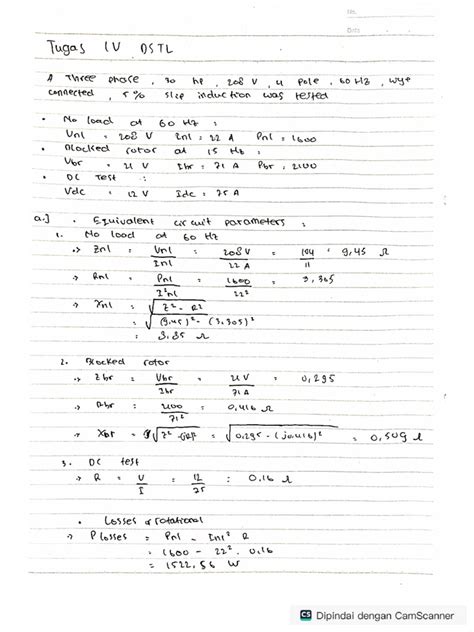 No.
Date
Tugas IV DSTL
A Three phase, 30 hp, 208 V, 4 pole, 60 Hz, wye
connected, 5% slip induction was tested
• No load at 60 Hz :
Vnl = 208 V Inl = 22 A Pnl = 1600
• Blocked rotor at 15 Hz :
Vbr = 21 V Ibr = 71 A Pbr = 2100
• DC Test :
Vdc = 12 V Idc = 75 A
a.] • Equivalent circuit parameters :
1. No load at 60 Hz
-> Znl = Vnl / Inl = 208 V / 22 A = 104 / 11 = 9,45 Ω
-> Rnl = Pnl / I²nl = 1600 / 22² = 3,305
-> Xnl = √ Z² - R²
= √ (9.45)² - (3.305)²
= 8.85 Ω
2. Blocked rotor
-> Zbr = Vbr / Ibr = 21 V / 71 A = 0,295
-> Rbr = 2100 / 71² = 0,416 Ω
-> Xbr = √ = √ 0.295 - (j0.416)² = 0,509 Ω
3. DC test
-> R = V / I = 12 / 75 = 0.16 Ω
• Losses rotational
-> P losses = Pnl - Inl² R
= 1600 - 22² . 0,16
= 1522,56 W
CS Dipindai dengan CamScanner